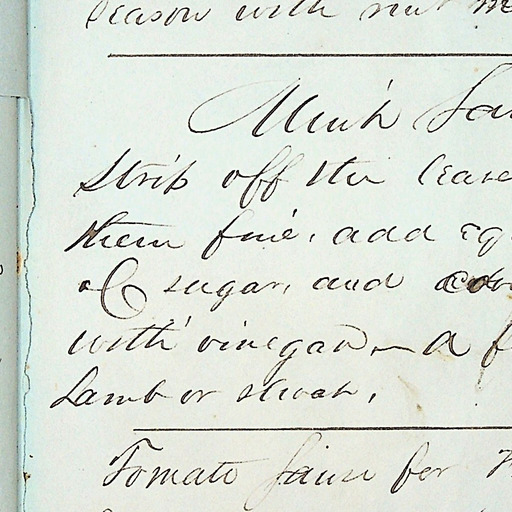 Season with nut m
Mint Sau
Strip off the leave
them fine, add eq
of sugar, and
with vinegar, — a f
Lamb or steak.
Tomato Sauce for